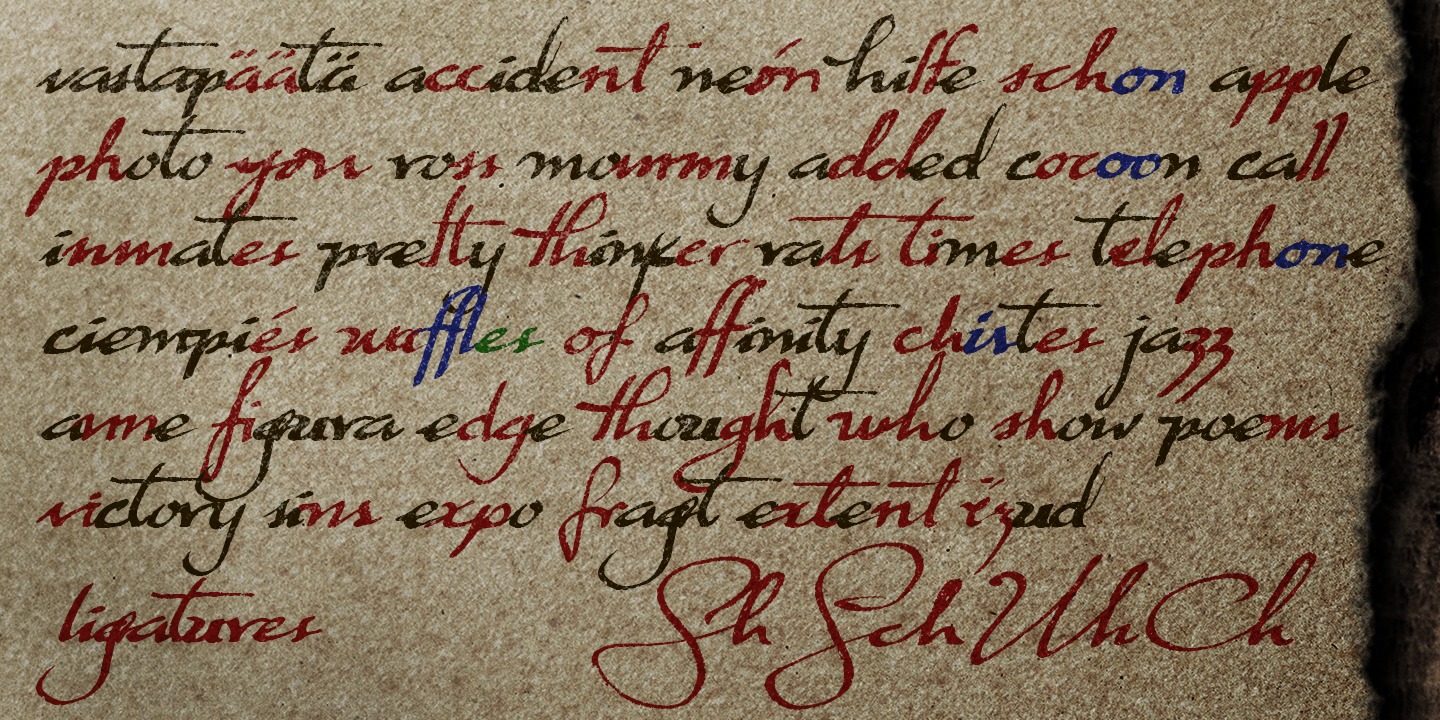 vastapäätä accident neón hilfe schon apple
photo you ross mommy added cocoon call
inmates pretty thinker rats times telephone
ciempiés waffles of affinity chistes jazz
anne figura edge thought who show poems
victory sins expo fragt extent ïzud
ligatures Sh Sch Uh Ch